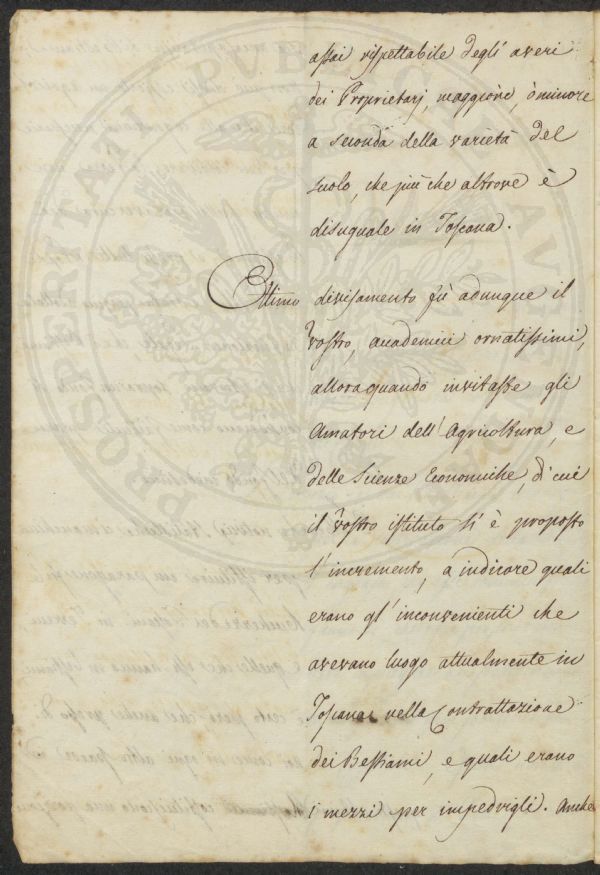 assai rispettabile degl' averi
dei Proprietarj, maggiore, ò minore
a seconda della varietà del
suolo, che più che altrove è
disuguale in Toscana.
Ottimo divisamento fù adunque il
vostro, accademici ornatissimi,
alloraquando invitaste gli
Amatori dell' Agricoltura, e
delle Scienze Economiche, di cui
il vostro istituto si è proposto
l'incremento, a indicare quali
erano gl' inconvenienti che
avevano luogo attualmente in
Toscana nella Contrattazione
dei Bestiami, e quali erano
i mezzi per impedirgli. Anche
PROSPERITATI PUBLICAE AUGENDAE